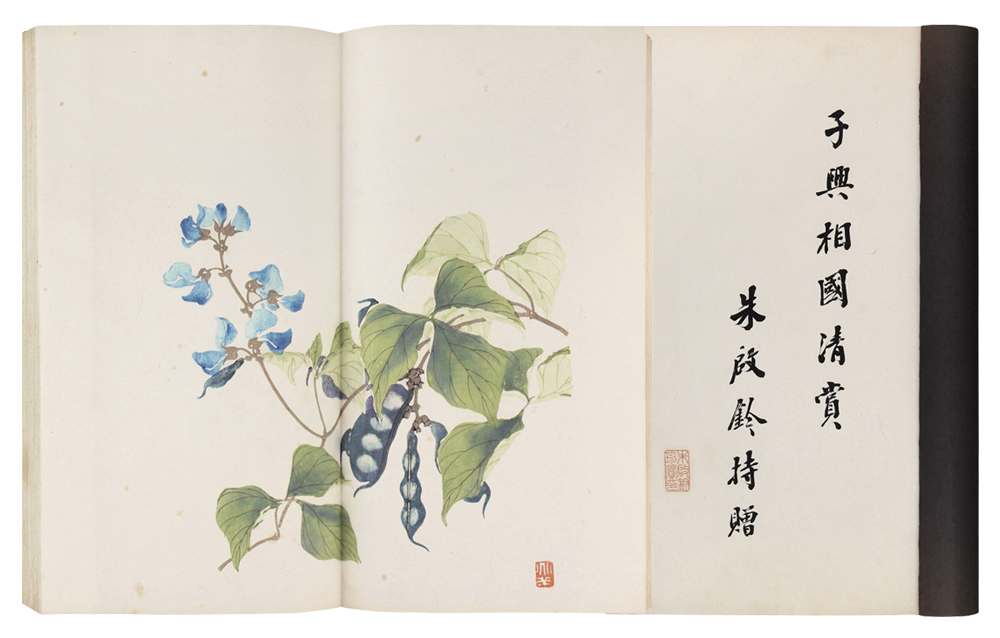 子興相國清賞
朱啟鈐持贈